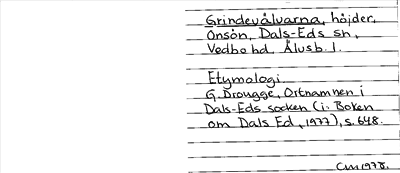 Grindevålvarna, höjder,
Onsön, Dals-Eds sn,
Vedbo hd, Älvsb. l.
Etymologi
G. Drougge, Ortnamnen i
Dals-Eds socken (i: Boken
om Dals Ed, 1977), s. 648.
CM 1978.